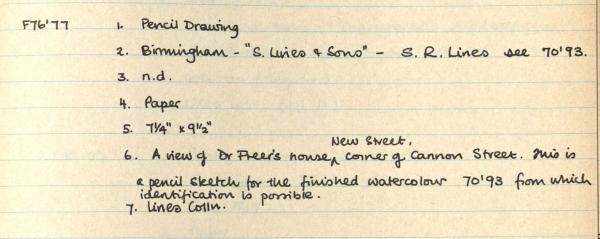 F76'77 1. Pencil Drawing
2. Birmingham - "S. Lines & Sons" - S. R. Lines see 70'93.
3. n.d.
4. Paper
5. 7¼" x 9½"
New Street,
6. A view of Dr Freer's house, corner of Cannon Street. This is
a pencil sketch for the finished watercolour 70'93 from which
identification is possible.
7. Lines Colln.